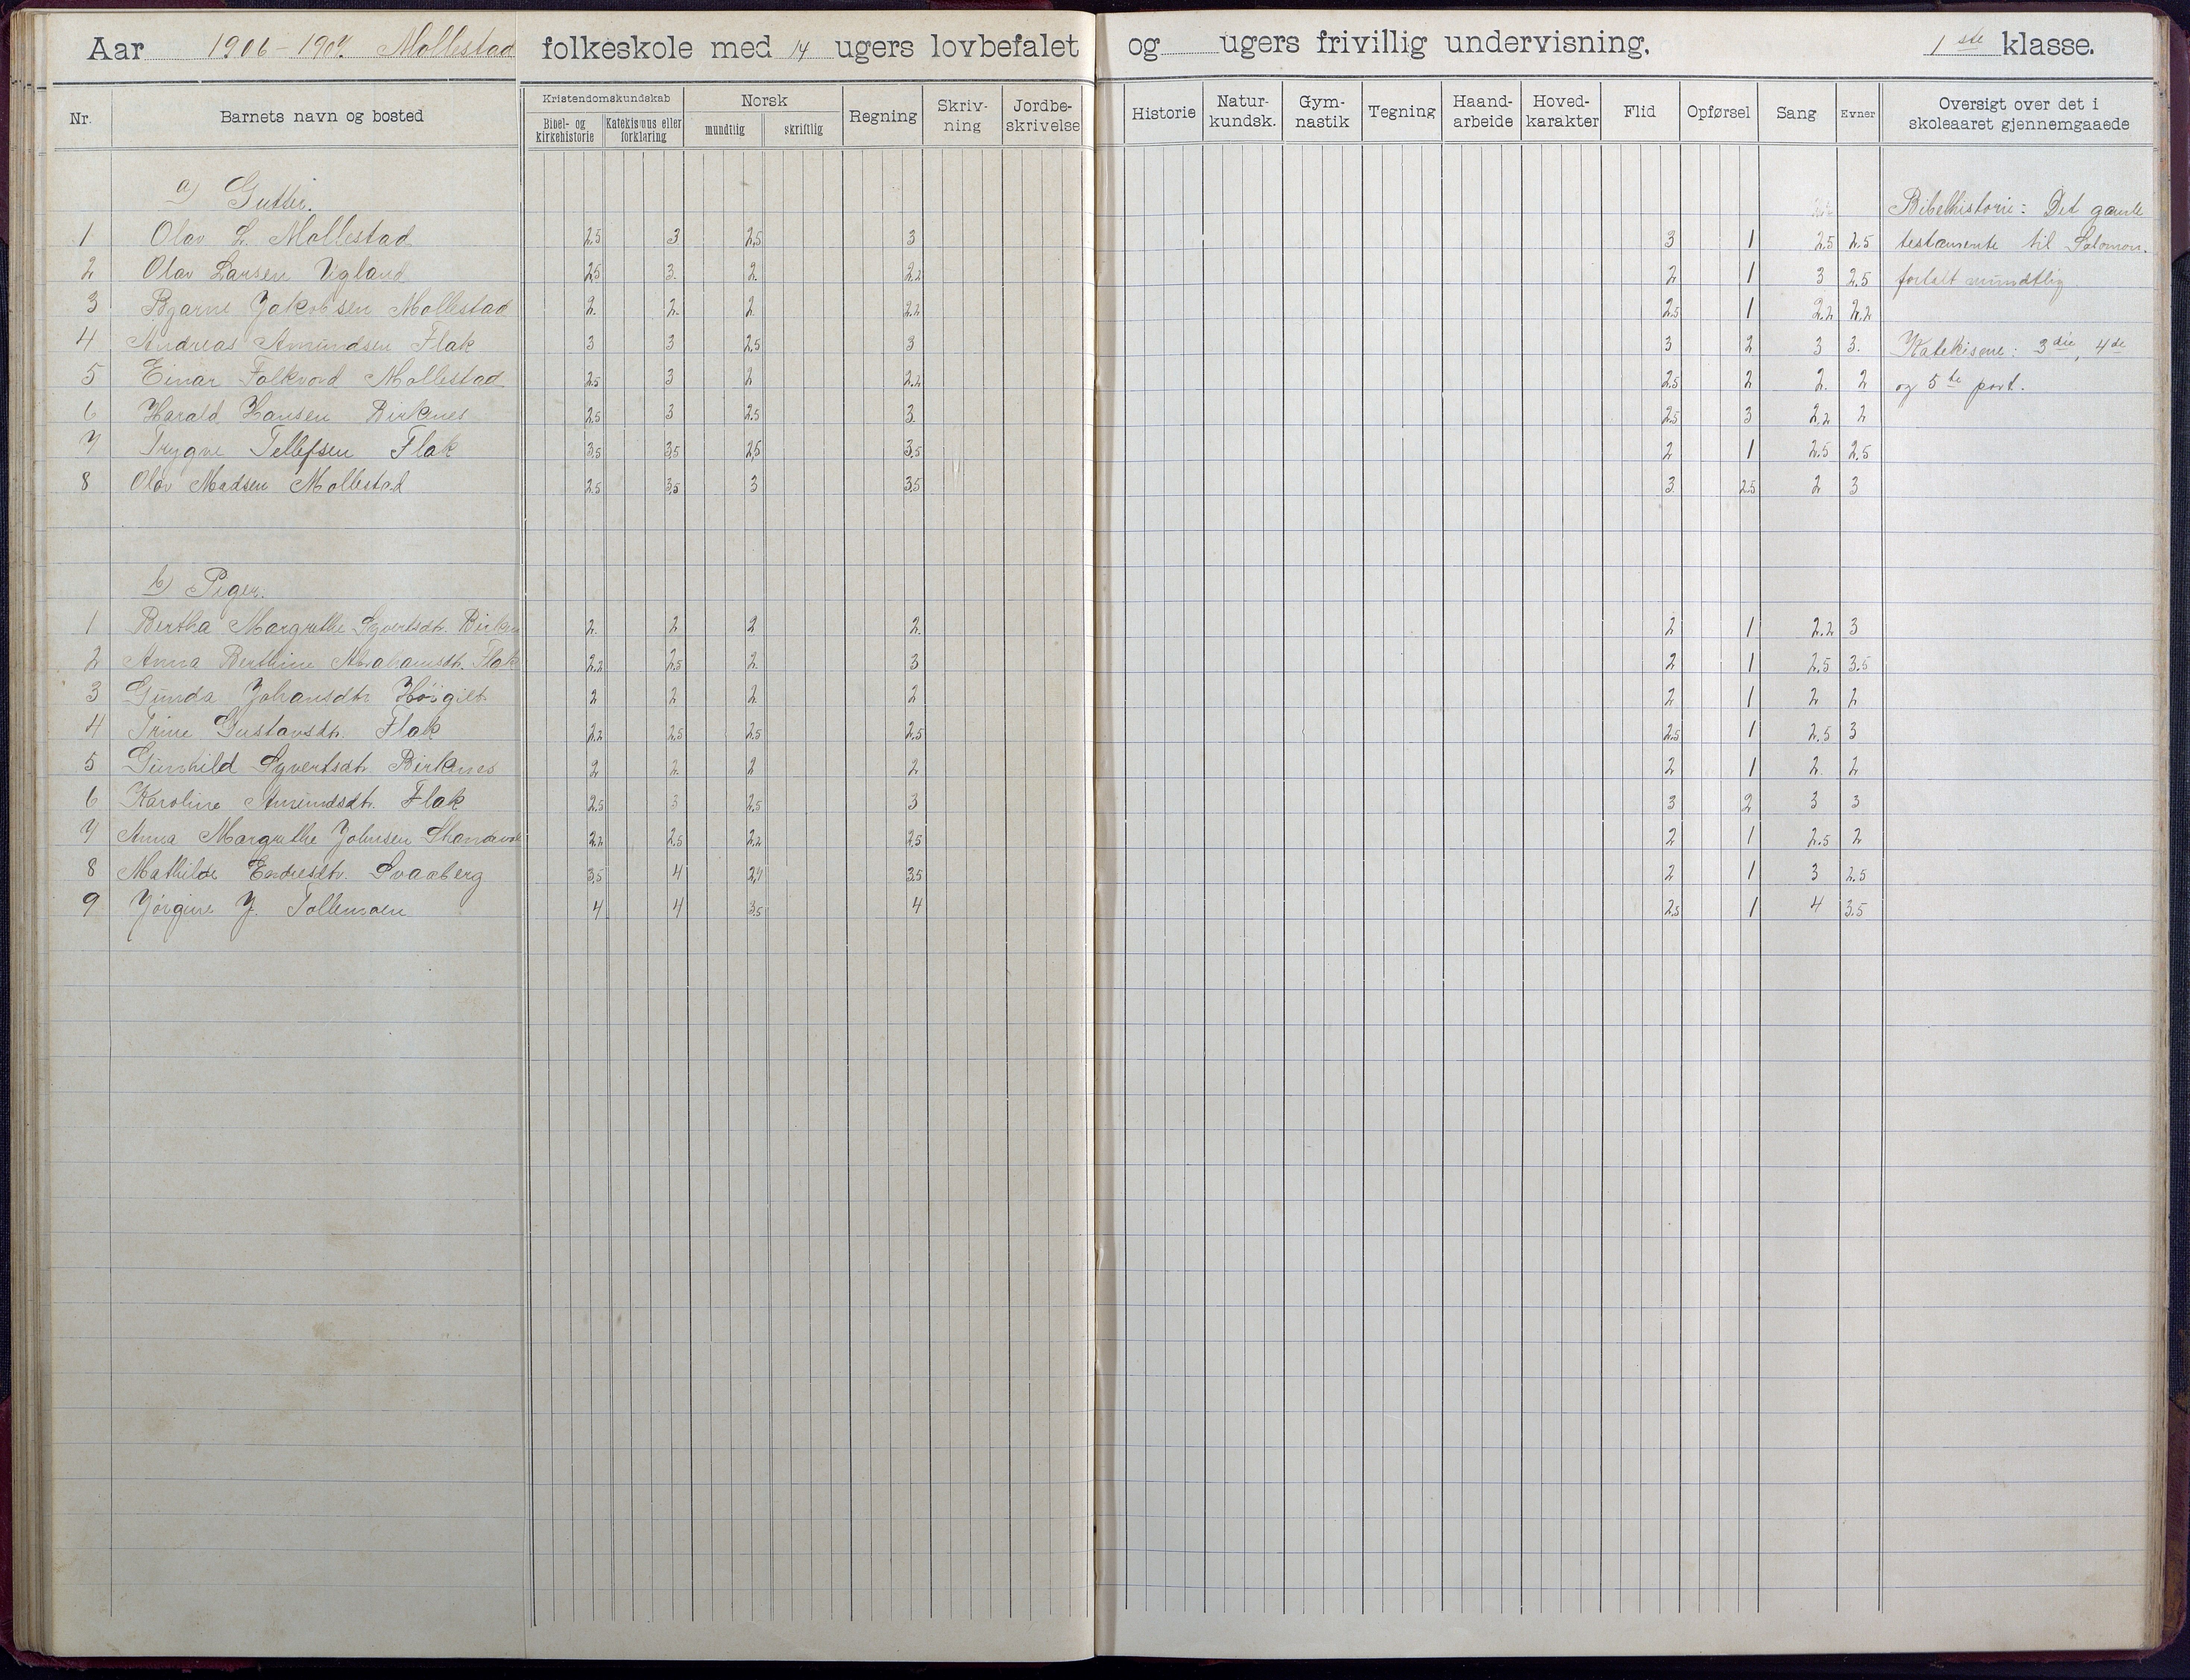 Aar 1906-1907. Mollestad folkeskole med 14 ugers lovbefalet og ugers frivillig undervisning. 1ste klasse.
Nr. Barnets navn og bosted Kristendomskundskab Bibel- og kirkehistorie Katekismus eller forklaring Norsk mundtlig skriftlig Regning Skriv-ning Jordbe-skrivelse Historie Natur-kundsk. Gym-nastik Tegning Haand-arbeide Hoved-karakter Flid Opførsel Sang Evner Oversigt over det i skoleaaret gjennemgaaede
a) Gutter. Bibelhistorie: Det gamle
1 Olav L. Mollestad 2.5 3 2.5 3 3 1 2.5 2.5 testamente til Salomon.
2 Olav Larsen Vigland 2.5 3. 2. 2.2 2 1 3 2.5 fortalt mundtlig
3 Bjarne Jakobsen Mollestad 2. 2. 2. 2.2 2.5 1 2.2 2.2
4 Andreas Amundsen Flak 3 3 2.5 3 3 2 3 3. Katekisme: 3die, 4de
5 Einar Falkvord Mollestad 2.5 3 2 2.2 2.5 2 2. 2 og 5te part.
6 Harald Hansen Birknes 2.5 3 2.5 3. 2.5 3 2.2 2
7 Trygve Tellefsen Flak 3.5 3.5 2.5 3.5 2 1 2.5 2.5
8 Olav Madsen Mollestad 2.5 3.5 3 3.5 3. 2.5 2 3
b) Piger.
1 Bertha Margrethe Syvertsdtr. 2. 2 2 2. 2 1 2.2 3
2 Anna Berthine Abrahamsdtr. Flak 2.2 2.5 2. 3 2 1 2.5 3.5
3 Gunda Johansdtr Høigilt 2 2 2. 2 2 1 2 2
4 Trine Gustavsdtr. Flak 2.2 2.5 2.5 2.5 2.5 1 2.5 3
5 Gunhild Syvertsdtr. Birknes 2 2. 2 2 2 1 2. 2
6 Karoline Amundsdtr. Flak 2.5 3 2.5 3 3 2 3 3
7 Anna Margrethe Johnsen 2.2 2.5 2.2 2.5 2 1 2.5 2
8 Mathilde Endresdtr. Svaaberg 3.5 4 2.7 3.5 2 1 3 2.5
9 Jørgine J. Tollemoen 4 4 3.5 4 2.5 1 4 3.5